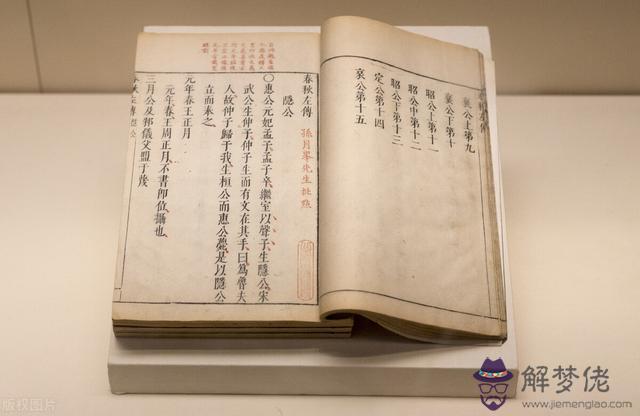 襄公上第九
襄公下第十
昭公上第十一
昭公中第十二
昭公下第十三
定公第十四
哀公第十五
春秋左傳 孫月峯先生批點
隱公
○惠公元妃孟子孟子卒繼室以聲子生隱公宋
武公生仲子仲子生而有文在其手曰為魯夫
人故仲子歸于我生桓公而惠公薨是以隱公
立而奉之
元年春王正月
元年春王周正月不書即位攝也
三月公及邾儀父盟于蔑
春秋左傳 隱公
版权图片
解梦佬
www.jiemenglao.com